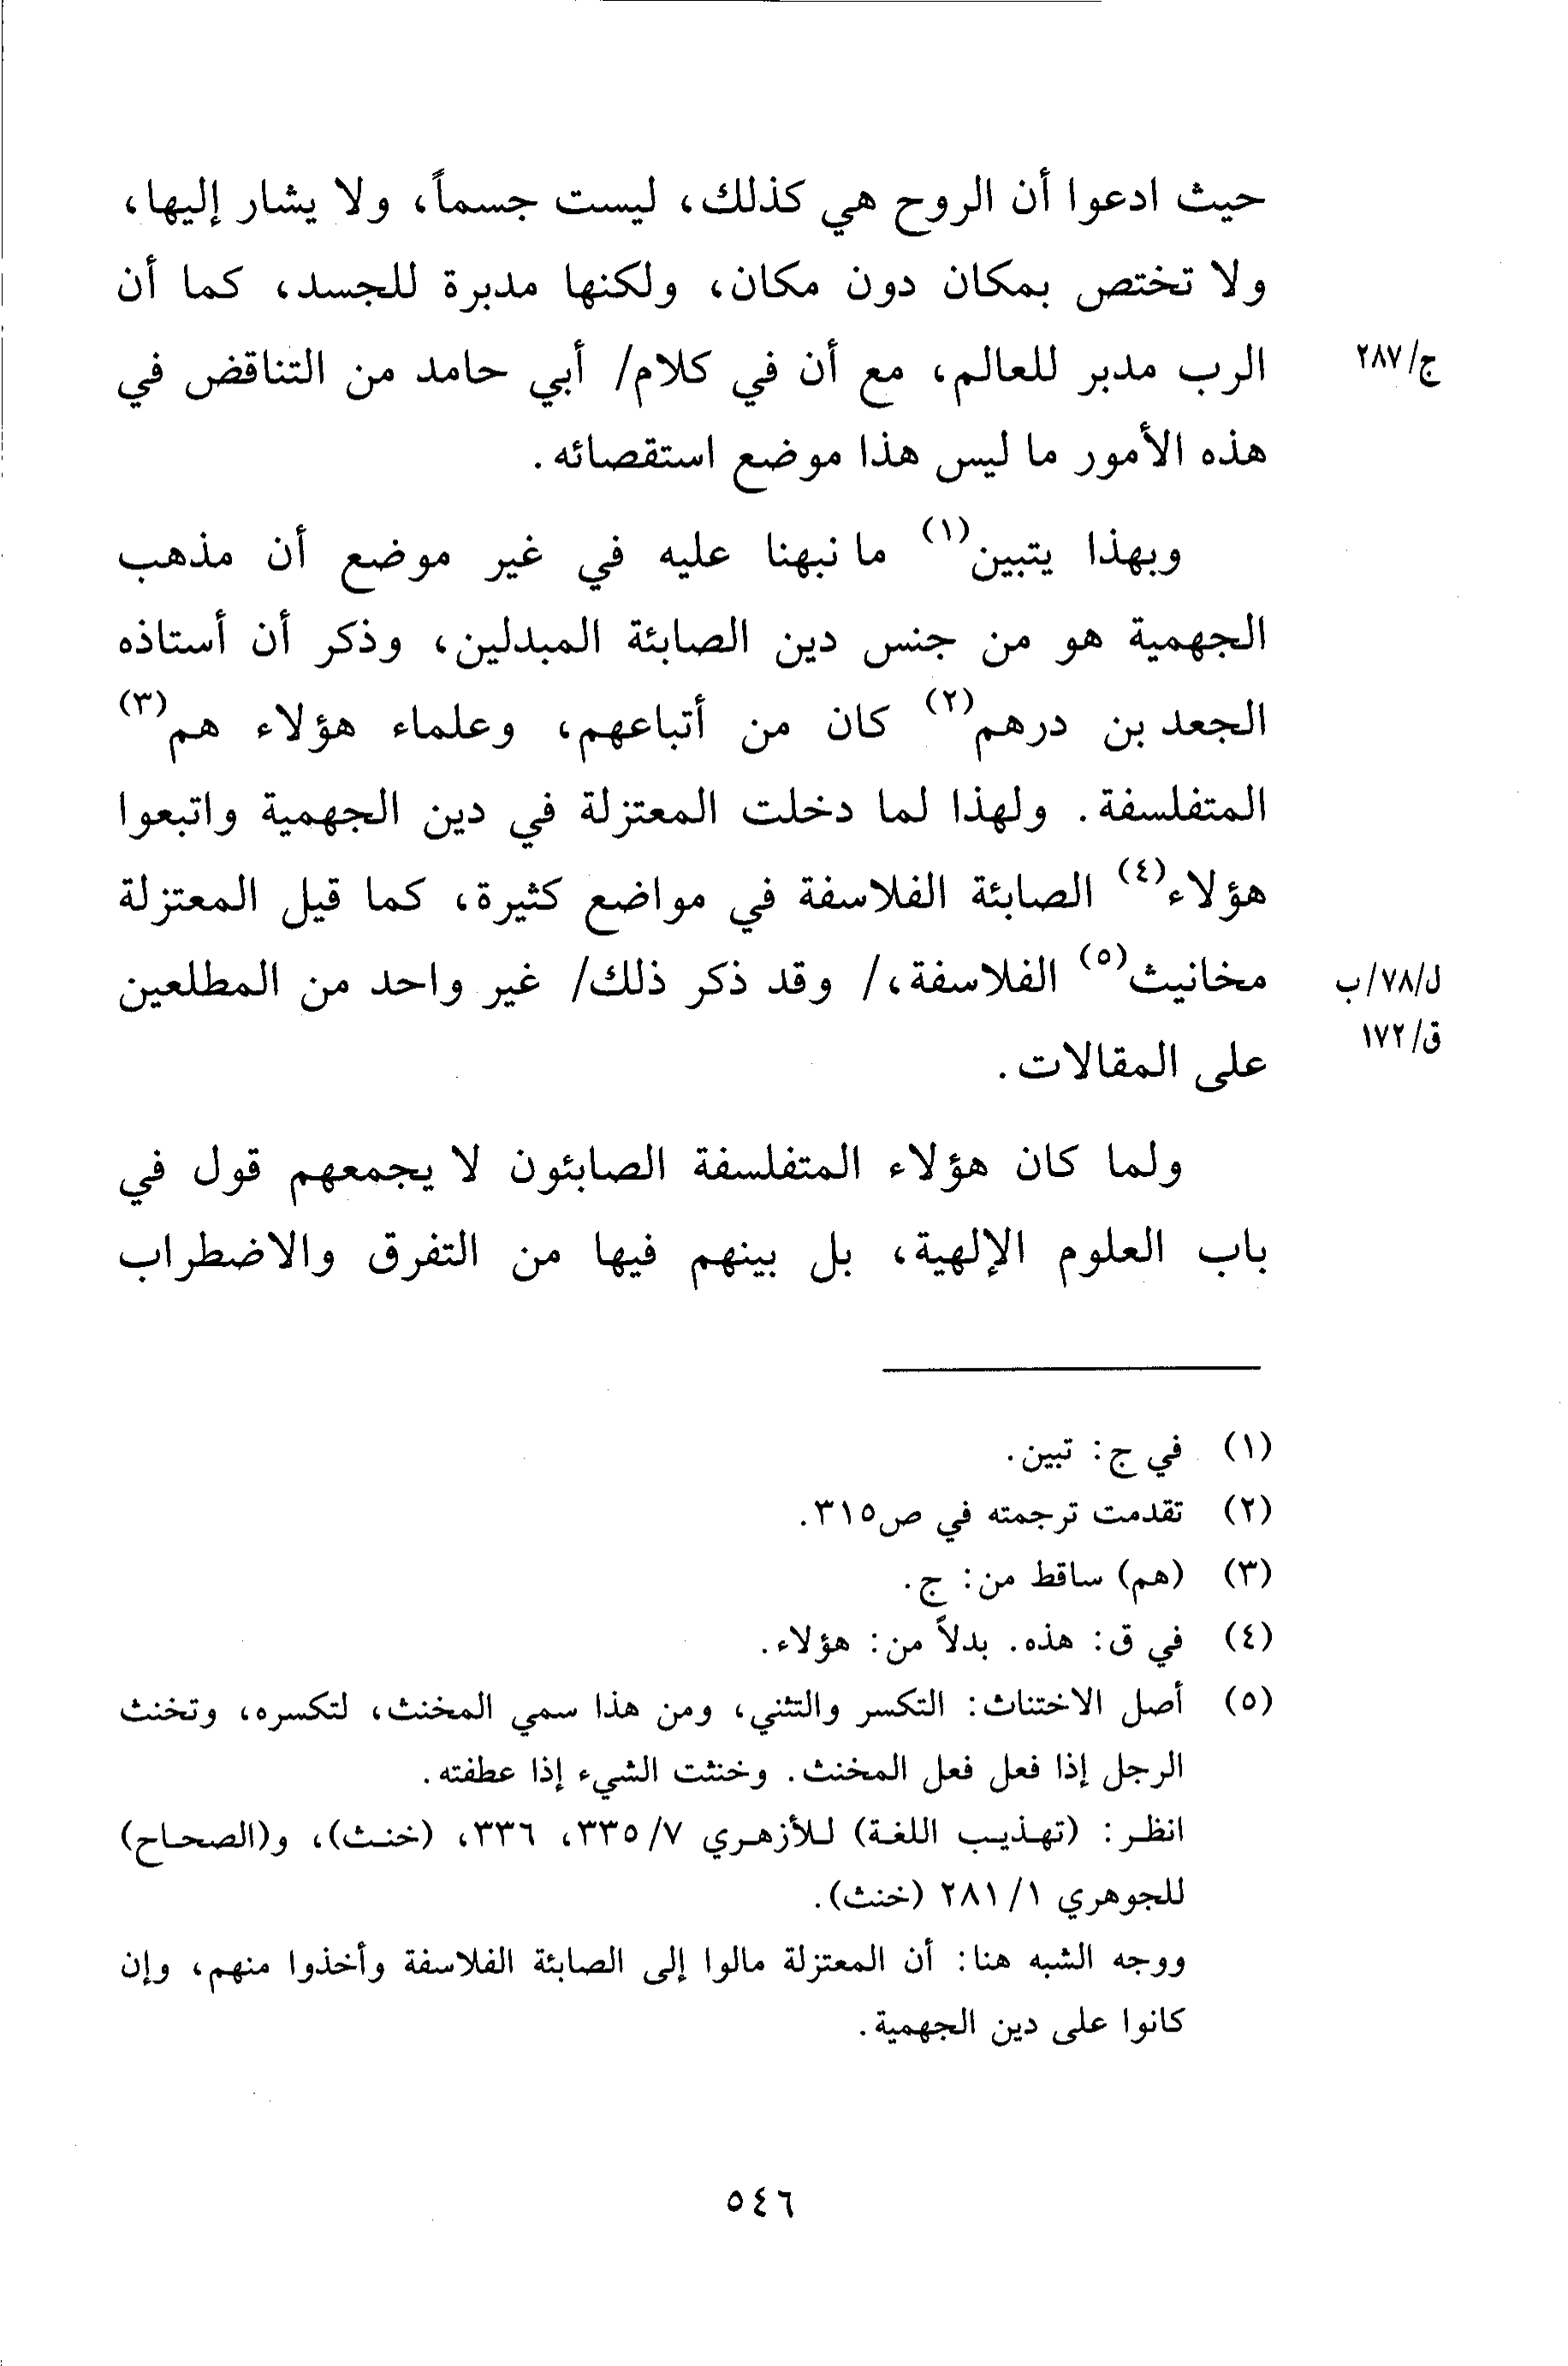 حيث ادعوا أن الروح هي كذلك، ليست جسماً، ولا يشار إليها،
ولا تختص بمكان دون مكان، ولكنها مدبرة للجسد، كما أن
الرب مدبر للعالم، مع أن في كلام/ أبي حامد من التناقض في
ج/٢٨٧
هذه الأمور ما ليس هذا موضع استقصائه.
وبهذا يتبين(١) ما نبهنا عليه في غير موضع أن مذهب
الجهمية هو من جنس دين الصابئة المبدلين، وذكر أن أستاذه
الجعد بن درهم(٢) كان من أتباعهم، وعلماء هؤلاء هم(٣)
المتفلسفة. ولهذا لما دخلت المعتزلة في دين الجهمية واتبعوا
هؤلاء(٤) الصابئة الفلاسفة في مواضع كثيرة، كما قيل المعتزلة
مخانيث(٥) الفلاسفة،/ وقد ذكر ذلك/ غير واحد من المطلعين
ل/٧٨/ب
ق/١٧٢
على المقالات.
ولما كان هؤلاء المتفلسفة الصابئون لا يجمعهم قول في
باب العلوم الإلهية، بل بينهم فيها من التفرق والاضطراب
(١) في ج: تبين.
(٢) تقدمت ترجمته في ص٣١٥.
(٣) (هم) ساقط من: ج.
(٤) في ق: هذه. بدلاً من: هؤلاء.
(٥) أصل الاختناث: التكسر والتثني، ومن هذا سمي المخنث، لتكسره، وتخنث
الرجل إذا فعل فعل المخنث. وخنثت الشيء إذا عطفته.
انظر: (تهذيب اللغة) للأزهري ٧/ ٣٣٥، ٣٣٦، (خنث)، و(الصحاح)
للجوهري ١/ ٢٨١ (خنث).
ووجه الشبه هنا: أن المعتزلة مالوا إلى الصابئة الفلاسفة وأخذوا منهم، وإن
كانوا على دين الجهمية.
٥٤٦